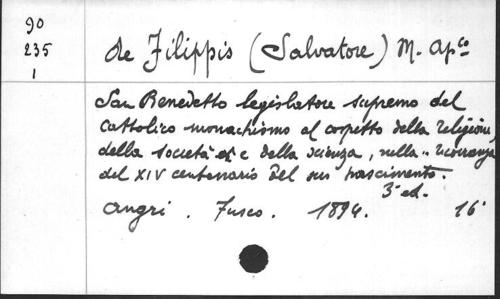 90
235
1
de Filippis (Salvatore) M. Ap.co
San Benedetto legislatore supremo del
cattolico monachismo al cospetto della religione,
della società e della scienza, nella ricorrenza
del XIV centenario del suo nascimento.
3ª ed.
Angri. Fusco. 1894. 16°